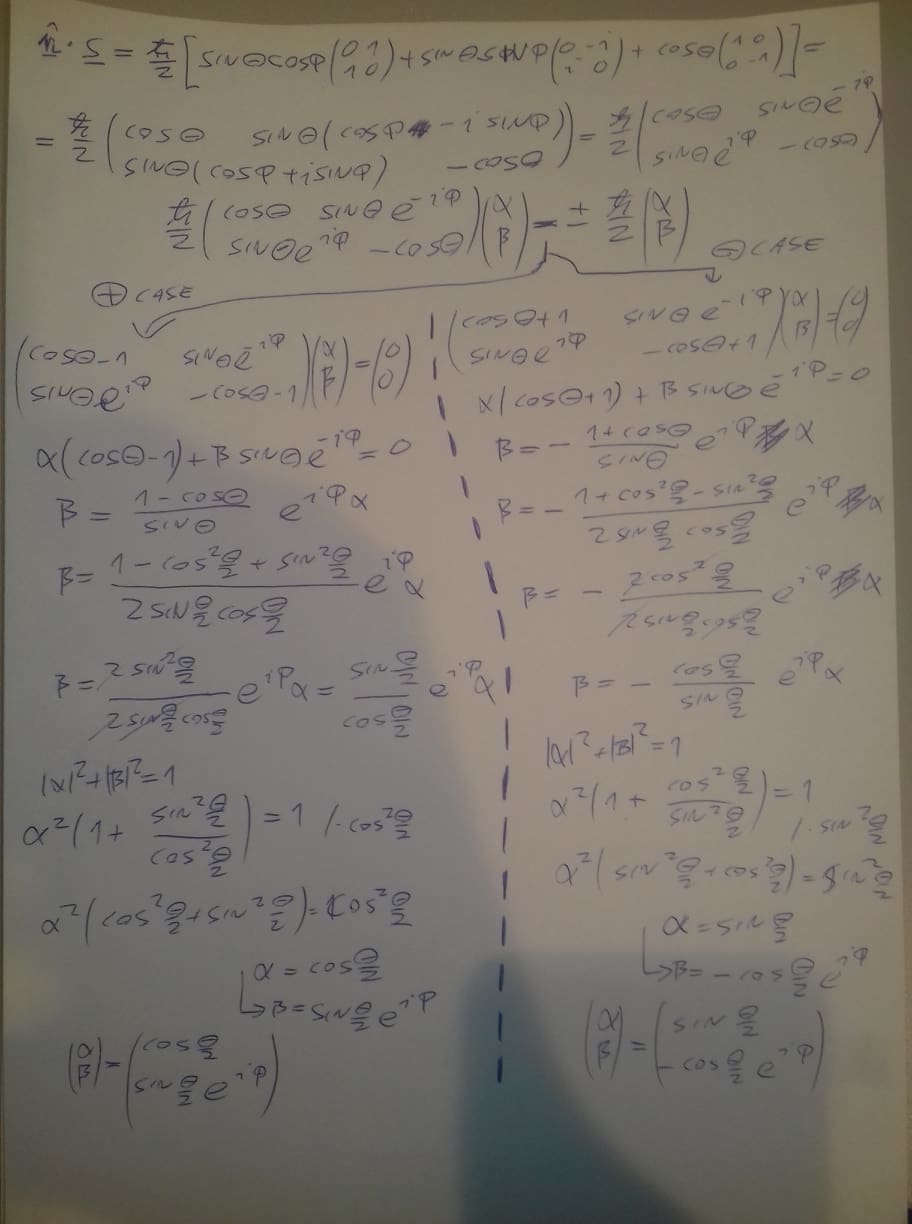 n̂ · S = ħ/2 [sinθcosφ (0 1; 1 0) + sinθsinφ (0 -i; i 0) + cosθ (1 0; 0 -1)] =
= ħ/2 (cosθ sinθ(cosφ - i sinφ); sinθ(cosφ + i sinφ) -cosθ) = ħ/2 (cosθ sinθe^-iφ; sinθe^iφ -cosθ)
ħ/2 (cosθ sinθe^-iφ; sinθe^iφ -cosθ)(α; β) = ± ħ/2 (α; β)
⊕ CASE
(cosθ-1 sinθe^-iφ; sinθe^iφ -cosθ-1)(α; β) = (0; 0)
α(cosθ-1) + β sinθe^-iφ = 0
β = (1-cosθ)/(sinθ) e^iφ α
β = (1 - cos²θ/2 + sin²θ/2)/(2 sinθ/2 cosθ/2) e^iφ α
β = (2 sin²θ/2)/(2 sinθ/2 cosθ/2) e^iφ α = (sinθ/2)/(cosθ/2) e^iφ α
|α|²+|β|²=1
α²(1 + (sin²θ/2)/(cos²θ/2)) = 1 /·cos²θ/2
α²(cos²θ/2 + sin²θ/2) = cos²θ/2
α = cosθ/2
↳ β = sinθ/2 e^iφ
(α; β) = (cosθ/2; sinθ/2 e^iφ)
⊖ CASE
(cosθ+1 sinθe^-iφ; sinθe^iφ -cosθ+1)(α; β) = (0; 0)
α(cosθ+1) + β sinθe^-iφ = 0
β = - (1+cosθ)/(sinθ) e^iφ α
β = - (1+cos²θ/2 - sin²θ/2)/(2 sinθ/2 cosθ/2) e^iφ α
β = - (2cos²θ/2)/(2sinθ/2 cosθ/2) e^iφ α
β = - (cosθ/2)/(sinθ/2) e^iφ α
|α|²+|β|²=1
α²(1 + (cos²θ/2)/(sin²θ/2)) = 1
/·sin²θ/2
α²(sin²θ/2 + cos²θ/2) = sin²θ/2
α = sinθ/2
↳ β = -cosθ/2 e^iφ
(α; β) = (sinθ/2; -cosθ/2 e^iφ)